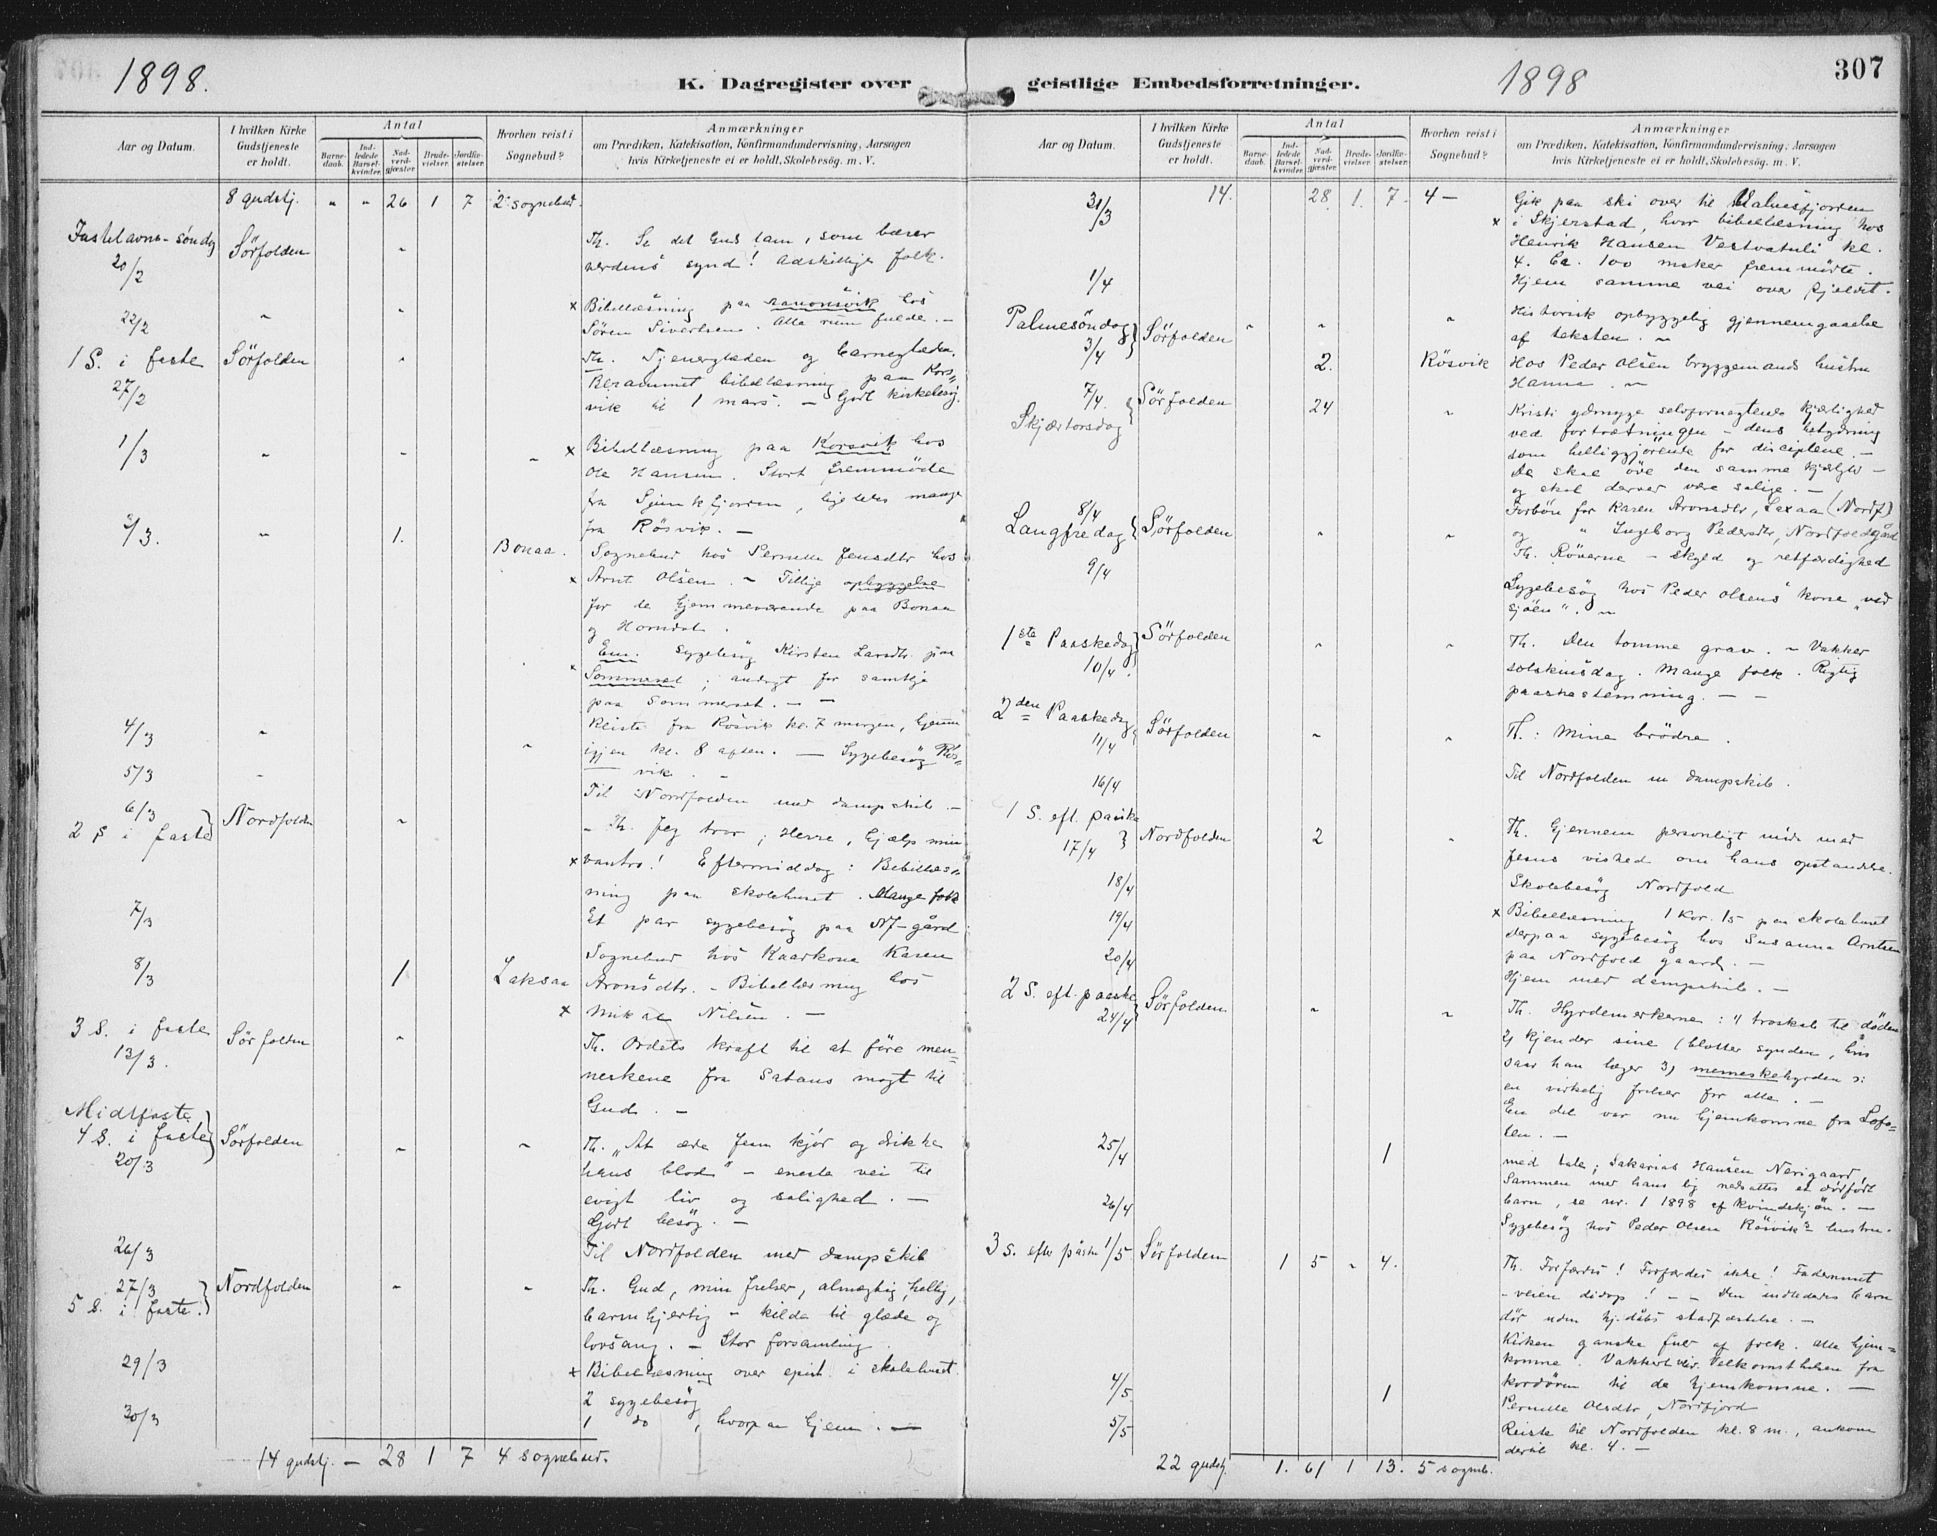 1898.
K. Dagregister over
Aar og Datum.
I hvilken Kirke Gudstjeneste er holdt.
Antal
Barne-daab.
Ind-ledede Barsel-kvinder.
Nad-verd-gjæster.
Brude-vielser.
Jordfæ-stelser.
Hvorhen reist i Sognebud?
Anmærkninger
om Prædiken, Katekisation, Konfirmandundervisning, Aarsagen
hvis Kirketjeneste ei er holdt, Skolebesøg. m. V.
8 gudstj. " " 26 1 7 2 sognebud.
Fastelavns-søndag Sørfolden
20/2
Th. Se det Guds lam, som bærer
verdens synd! Adskillige folk.
22/2
x Bibellæsning paa hos
Sören Sivertsen. Alle rum fulde. –
1 S. i faste Sørfolden
27/2
Th. Tjenerglæden og barneglæden.
Berammet bibellæsning paa Kors=
vik til 1 mars. – Godt kirkebesög.
1/3
x Bibellæsning paa Korsvik hos
Ole Hansen. Stort fremmöde
fra Sjunkfjorden, ligeledes mange
fra Rösvik. –
3/3. 1. Bonaa.
Sognebud hos Pernille Jensdtr hos
x Arnt Olsen. – Tillige opbyggelse
for de hjemmeværende paa Bonaa
og Horndal.
Em. Sygebesög Kirsten Larsdtr. paa
x Sommerset; andagt for samtlige
paa Sommerset. – –
4/3
Reiste fra Rösvik kl. 7 morgen, hjem
igjen kl. 8 aften. — Sygebesög Rös=
vik.
5/3
Til Nordfolden med dampskib. –
6/3
2 S. i faste Nordfolden
– Th. Jeg tror, Herre, hjælp min
x vantro! Eftermiddag: Bibellæs=
ning paa skolehuset. Mange folk
7/3
Et par sygebesög paa Nf-gård
8/3 1 Laksaa
Sognebud hos Kaarkona Karen
Aronsdtr. – Bibellæsning hos
x Mikal Nilsen. –
3 S. i faste Sørfolden
13/3.
Th. Ordets kraft til at före men=
neskene fra Satans magt til
Gud. –
Midtfaste
4 S. i faste Sørfolden
20/3
Th. "At æde Jesu kjöd og drikke
hans blod" – eneste vei til
evigt liv og salighed. –
Godt besög. –
26/3
Til Nordfolden med dampskib
27/3
5 S. i faste. Nordfolden
Th. Gud, min frelser, almægtig, hellig,
barmhjertig – kilde til glæde og
lovsang. – Stor forsamling.
29/3
x Bibellæsning over epist. i skolehuset.
2 sygebesög
30/3
1 do , hvorpaa hjem. —
14 gudstj. – 28 1 7 4 sognebud.
geistlige Embedsforretninger.
1898
307
Aar og Datum.
I hvilken Kirke Gudstjeneste er holdt.
Antal
Barne-daab.
Ind-ledede Barsel-kvinder.
Nad-verd-gjæster.
Brude-vielser.
Jordfæ-stelser.
Hvorhen reist i Sognebud?
Anmærkninger
om Prædiken, Katekisation, Konfirmandundervisning, Aarsagen
hvis Kirketjeneste ei er holdt, Skolebesøg. m. V.
31/3 14. 28. 1. 7. 4 —
Gik paa ski over til Valnesfjorden
x i Skjerstad, hvor bibellæsning hos
Henrik Hansen kl.
4. Ca. 100 msker fremmödte.
1/4
Hjem samme vei over fjeldet.
Palmesöndag Sørfolden
3/4
Historisk opbyggelig gjennemgaaelse
af teksten. –
2. Rösvik
Hos Peder Olsen bryggemands hustru
Hanna. –
7/4.
Skjærtorsdag Sørfolden 24
Kristi ydmyge selvfornegtende kjærlighed
ved fodtvætningen – dens betydning
som helliggjörende for disciplene. –
De skal öve den samme kjærlgh –
og skal derved være salige. –
8/4
Langfredag Sørfolden
Forbön for Karen Aronsdtr, Laxaa (Nordf)
og " Ingeborg Pedersdtr, Nordfoldgård
Th. Röverne – skyld og retfærdighed
9/4
Sygebesög hos Peder Olsens kone "ved
sjöen". –
1ste Paaskedag Sørfolden
10/4.
Th. Den tomme grav. – Vakker
solskinsdag. Mange folk. Rigtig
paaskestemning. – –
2den Paaskedag Sørfolden
11/4
Th.: Mine brödre.
16/4
Til Nordfolden m dampskib.
1 S. eft. paaske
17/4 Nordfolden 2
Th. Gjennem personligt möde med
Jesus vished om hans opstandelse.
18/4
Skolebesög Nordfold
19/4
x Bibellæsning 1 Kor. 15 paa skolehuset
derpaa sygebesög hos Susanna Arntsen
paa Nordfold gaard. –
20/4
Hjem med dampskib. –
2 S. eft. paaske Sørfolden
24/4
Th. Hyrdemerkerne: 1) troskab til döden
2) kjender sine (blotter synden, hvis
saar han læger 3) menneskehyrden o:
en virkelig frelser for alle. –
En del var nu hjemkomne fra Lofo=
ten. –
25/4 1
med tale; Sakarias Hansen Nerigaard,
Sammen med hans lig nedsattes et dödfödt
barn, se nr. 1 1898 af kvindekjön. –
26/4
Sygebesög hos Peder Olsen Rösviks hustru.
3 S. efter påske 1/5 Sørfolden 1 5 – 4.
Th. Forfærdes! Forfærdes ikke! Fadernavnet
– veien didop! – – Den indledede barn
dör uden hj.dåbs stadfæstelse. –
Kirken ganske fuld af folk. Alle hjem=
komne. Vakkert veir. Velkomsthilsen fra
kordören til de hjemkomne. –
4/5 1
Pernille Olsdtr, Nordfjord
5/5
Reiste til Nordfolden kl. 8 m., ankom
dertil kl. 4. –
22 gudstj. 1. 61 1 13. 5 sogneb.